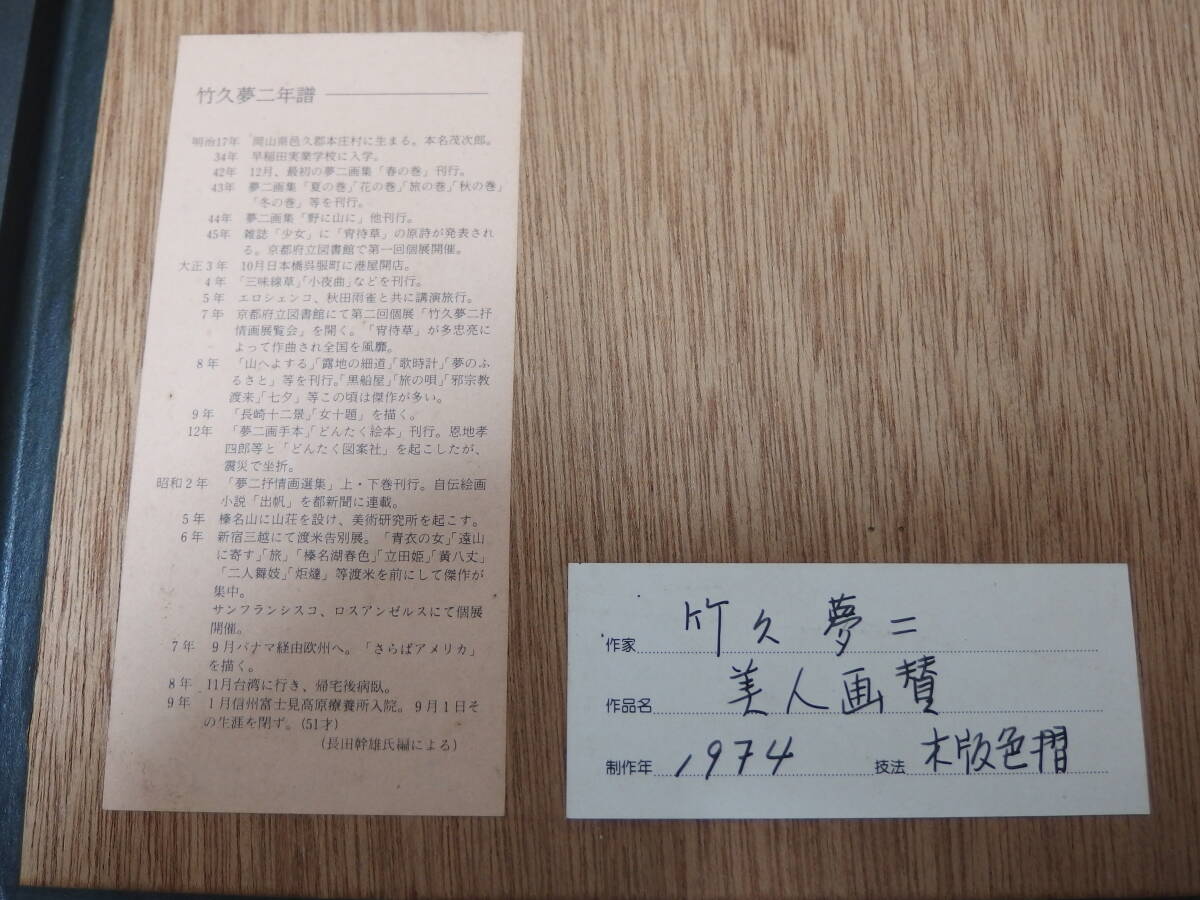 竹久夢二年譜
明治17年 岡山県邑久郡本庄村に生まる。本名茂次郎。
34年 早稲田実業学校に入学。
42年 12月、最初の夢二画集「春の巻」刊行。
43年 夢二画集「夏の巻」「花の巻」「旅の巻」「秋の巻」
「冬の巻」等を刊行。
44年 夢二画集「野に山に」他刊行。
45年 雑誌「少女」に「宵待草」の原詩が発表され
る。京都府立図書館で第一回個展開催。
大正3年 10月日本橋呉服町に港屋開店。
4年 「三味線草」「小夜曲」などを刊行。
5年 エロシェンコ、秋田雨雀と共に講演旅行。
7年 京都府立図書館にて第二回個展「竹久夢二抒
情画展覧会」を開く。「宵待草」が多忠亮に
よって作曲され全国を風靡。
8年 「山へよする」「露地の細道」「歌時計」「夢のふ
るさと」等を刊行。「黒船屋」「旅の唄」「邪宗教
渡来」「七夕」等この頃は傑作が多い。
9年 「長崎十二景」「女十題」を描く。
12年 「夢二画手本」「どんたく絵本」刊行。恩地孝
四郎等と「どんたく図案社」を起こしたが、
震災で坐折。
昭和2年 「夢二抒情画選集」上・下巻刊行。自伝絵画
小説「出帆」を都新聞に連載。
5年 榛名山に山荘を設け、美術研究所を起こす。
6年 新宿三越にて渡米告別展。「青衣の女」「遠山
に寄す」「旅」「榛名湖春色」「立田姫」「黄八丈」
「二人舞妓」「炬燵」等渡米を前にして傑作が
集中。
サンフランシスコ、ロスアンゼルスにて個展
開催。
7年 9月パナマ経由欧州へ。「さらばアメリカ」
を描く。
8年 11月台湾に行き、帰宅後病臥。
9年 1月信州富士見高原療養所入院。9月1日そ
の生涯を閉ず。(51才)
(長田幹雄氏編による)
作家 竹久夢二
作品名 美人画賛
制作年 1974 技法 木版色摺